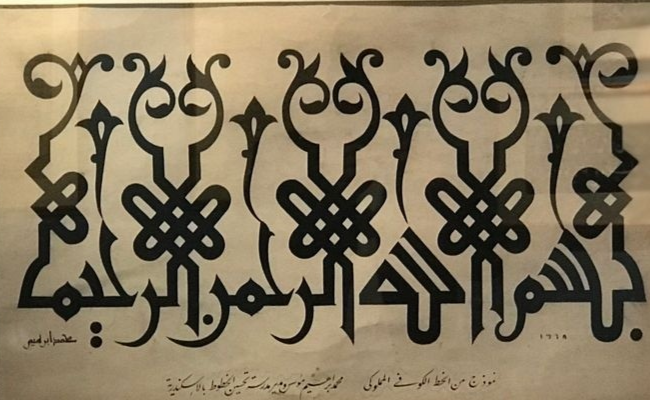 بسم الله الرحمن الرحيم
محمد ابراهيم ١٣٦٨
نموذج من الخط الكوفي المملوكي محمد ابراهيم مؤسس ومدير مدرسة تحسين الخطوط بالاسكندرية